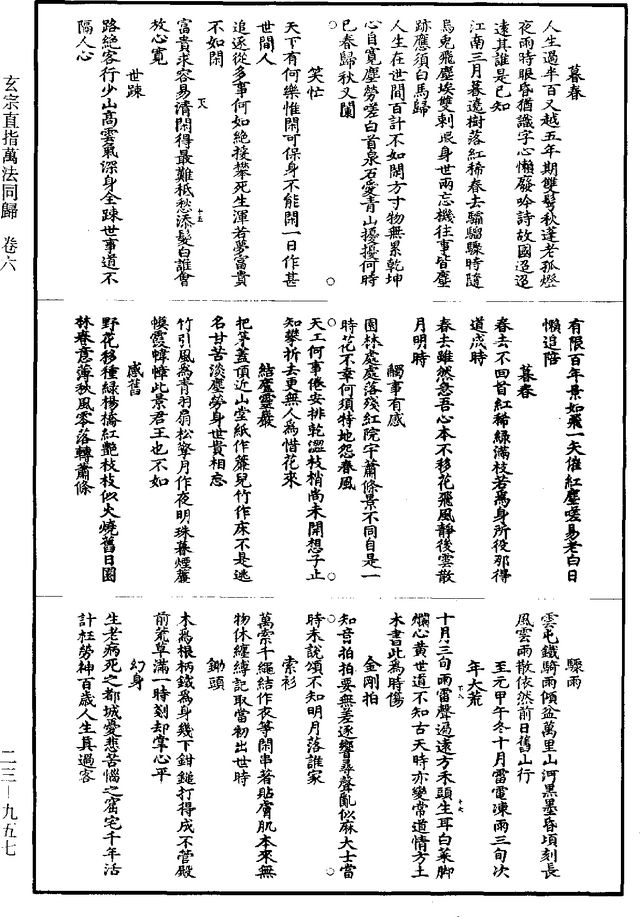 暮春
人生過半百又越五年期雙髩秋蓬老孤燈
夜雨時眼昏猶識字心懶廢吟詩故國迢迢
遠其誰是已知
江南三月暮遶樹落紅稀春去驕騮驟時隨
烏兔飛塵埃雙剌眼身世兩忘機往事皆塵
跡應須白馬歸
人生在世間百計不如閑方寸物無累乾坤
心自寬塵勞嗟白首泉石愛青山擾擾何時
已春歸秋又闌
笑忙
天下有何樂惟閑可保身不能閑一日作甚
世間人
追逐從多事何如絶接攀死生渾若夢富貴
不如閑
富貴求容易清閑得最難秪愁添髮白誰會
放心寬
世踈
路絶客行少山高雲氣深身全踈世事道不
隔人心
有限百年景如飛一矢催紅塵嗟易老白日
懶追陪
暮春
春去不回首紅稀綠滿枝若為身所役那得
道成時
春去雖然惹吾心本不移花飛風靜後雲散
月明時
觸事有感
園林處處落殘紅院宇蕭條景不同自是一
時花不幸何須特地怨春風
天工何事倦安排乾溫枝梢尚未開想子止
知攀折去更無人為惜花來
結廬靈巖
把茅蓋頂近山堂紙作簾兒竹作床不是逃
名甘苦淡塵勞身世貴相忘
竹引風為青羽扇松擎月作夜明珠暮煙簾
幙霞幃幛此景君王也不如
感舊
野花移種綠楊橋紅艷枝枝似火燒舊日園
林春意薄秋風零落轉蕭條
驟雨
雲屯鐵騎雨傾盆萬里山河黑墨昏頃刻長
風雲雨散依然前日舊山行
至元甲午冬十月雷電凍雨三旬次
年大荒
十月三旬雨雷聲過遠方禾頭生耳白菜脚
爛心黄世道不知古天時亦變常道情方土
木書此為時傷
金剛拍
知音拍拍要無差逐響尋聲亂似麻大士當
時未說頌不知明月落誰家
索衫
萬索千繩結作夜等閑串著貼膚肌本來無
物休纏縛記取當初出世時
鋤頭
木為根柄鐵為身幾下鉗鎚打得成不管殿
前荒草滿一時剗却掌心平
幻身
生老病死之都城憂悲苦惱之窟宅千年活
計枉勞神百歲人生真過客
玄宗直指萬法同歸　卷六
二三—九五七